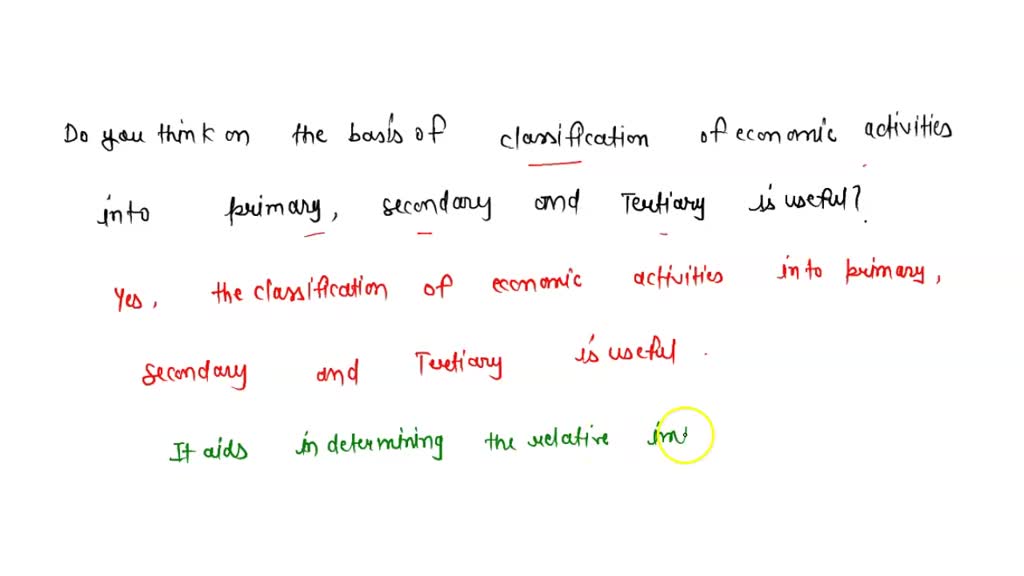 Do you think on the basis of classification of economic activities
into primary, secondary and Tertiary is useful?
Yes, the classification of economic activities into primary,
secondary and Tertiary is useful.
It aids in determining the relative im